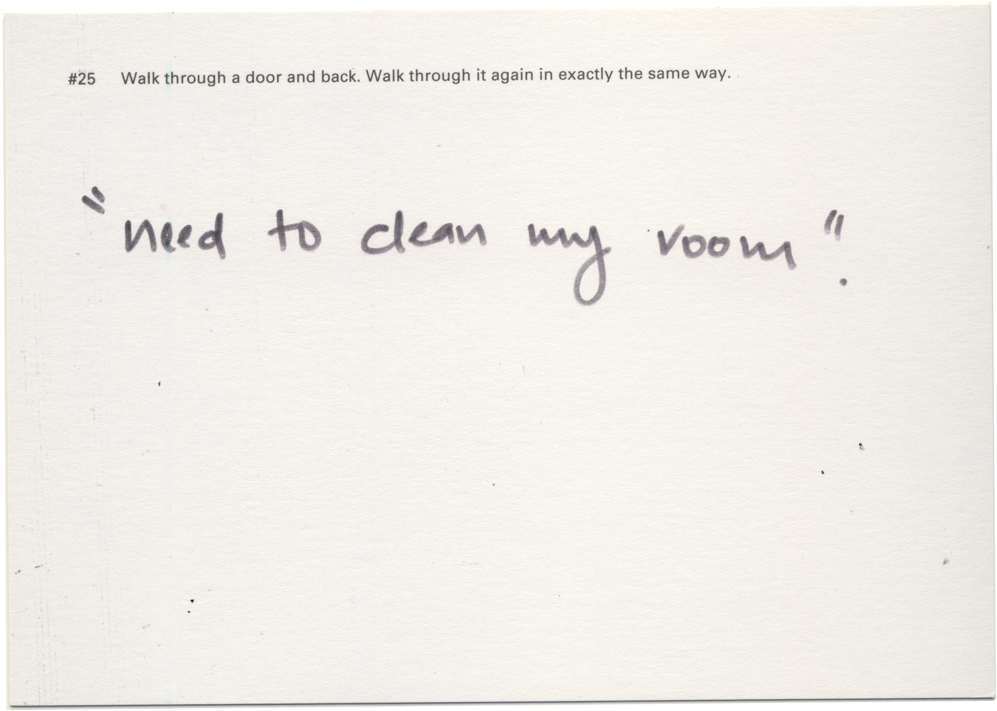 #25 Walk through a door and back. Walk through it again in exactly the same way.
"need to clean my room".